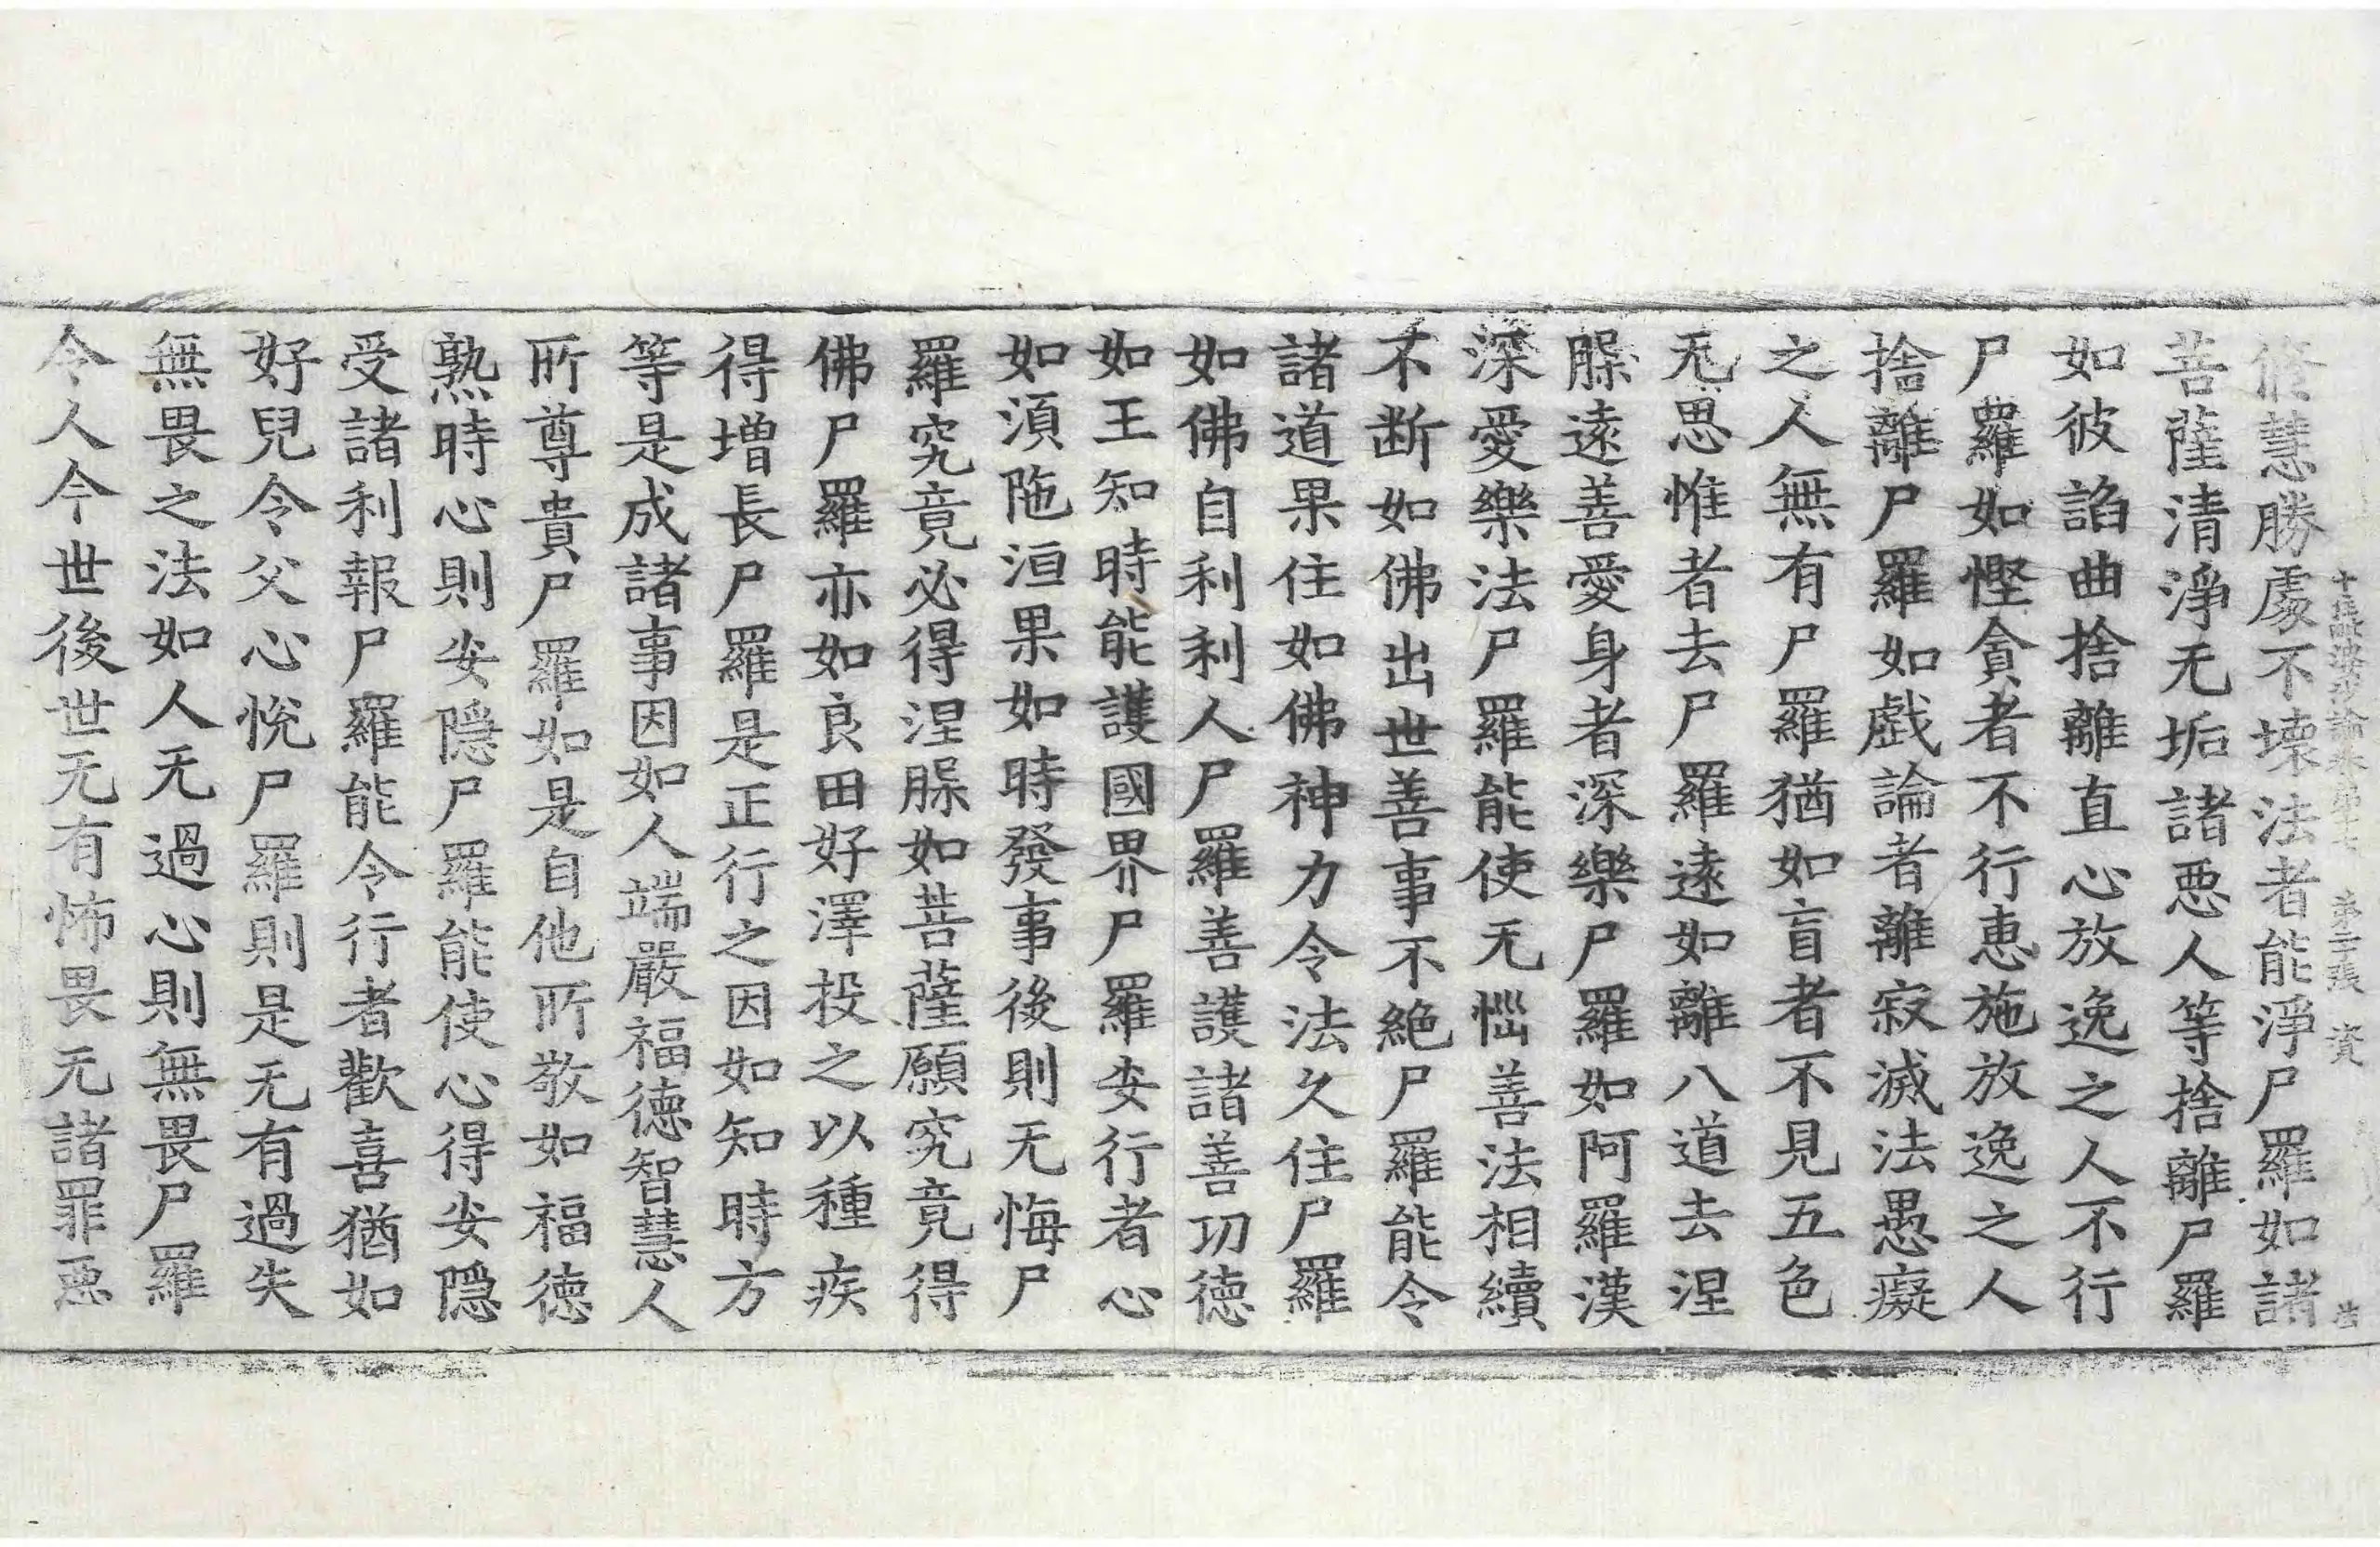 十住毗婆沙論卷第十七 第二張 資
修慧勝處不壞法者能淨尸羅如諸
菩薩清淨无垢諸惡人等捨離尸羅
如彼諂曲捨離直心放逸之人不行
尸羅如慳貪者不行惠施放逸之人
捨離尸羅如戲論者離寂滅法愚癡
之人無有尸羅猶如盲者不見五色
无思惟者去尸羅遠如離八道去涅
槃遠善愛身者深樂尸羅如阿羅漢
深愛樂法尸羅能使无惱善法相續
不断如佛出世善事不絶尸羅能令
諸道果住如佛神力令法久住尸羅
如佛自利利人尸羅善護諸善功徳
如王知時能護國界尸羅安行者心
如湏陁洹果如時發事後則无悔尸
羅究竟必得涅槃如菩薩願究竟得
佛尸羅亦如良田好澤投之以種疾
得增長尸羅是正行之因如知時方
等是成諸事因如人端嚴福徳智慧人
所尊貴尸羅如是自他所敬如福徳
熟時心則安隠尸羅能使心得安隠
受諸利報尸羅能令行者歡喜猶如
好兒令父心悅尸羅則是无有過失
無畏之法如人无過心則無畏尸羅
令人今世後世无有怖畏无諸罪惡